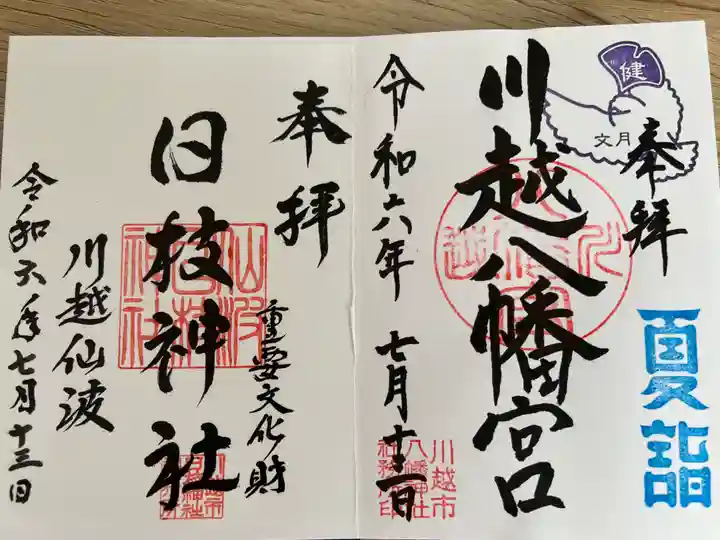 健
文月
奉拝
夏詣
川越八幡宮
川越市
八幡神社
社務所印
令和六年 七月十三日
奉拝
重要文化財
日枝神社
川越仙波
令和六年七月十三日